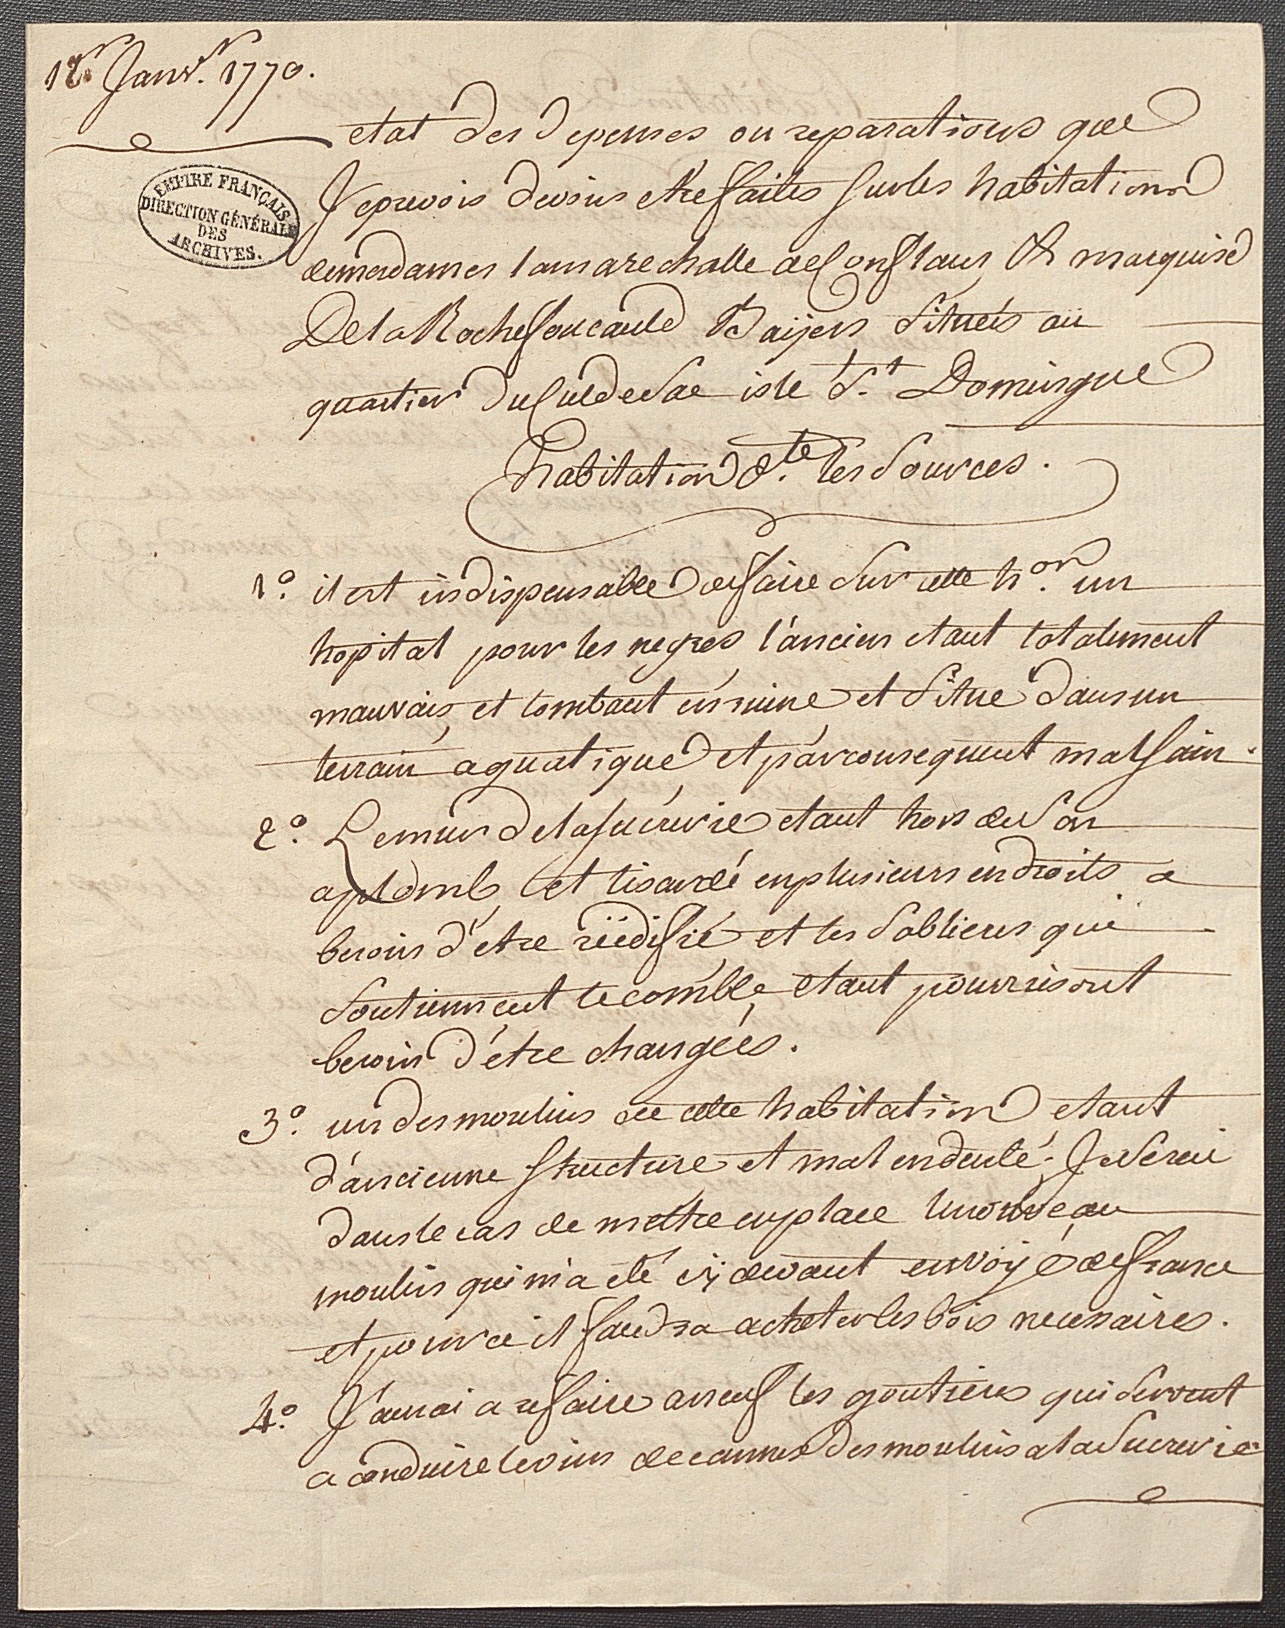 1er. Janvr. 1770.
etat des depenses ou reparations que
Je prevois devoir etre faites sur les habitations
de mesdames la marechalle de Conflans & marquise
De la Rochefoucauld Baÿers situeés aü
quartier du Cul de Sac isle St. Domingue
EMPIRE FRANÇAIS
DIRECTION GÉNÉRALE
DES
ARCHIVES.
habitation dte. les Sources.
1°. il est indispensable de faire sur cette hon. un
hopital pour les negres l'ancien etant totalement
mauvais, et tombant en ruine et situé dans un
terrain aquatique et par consequent mal sain.
2°. Le mur de la sucrerie etant hors de son
aplomb, et lisardé en plusieurs endroits a
besoin d'etre réédifié, et les sablieres qui
soutiennent le comble etant pourries ont
besoin d'étre changées.
3°. un des moulins de cette habitation etant
d'ancienne structure et mal endenté. Je serai
dans le cas de mettre en place le nouveau
moulin qui m'a eté cy devant envoÿé de france
et pour ce il faudra acheter les bois necessaires.
4°. J'aurai a refaire a neuf les goutieres qui servent
a conduire le vin de cannes des moulins a la sucrerie